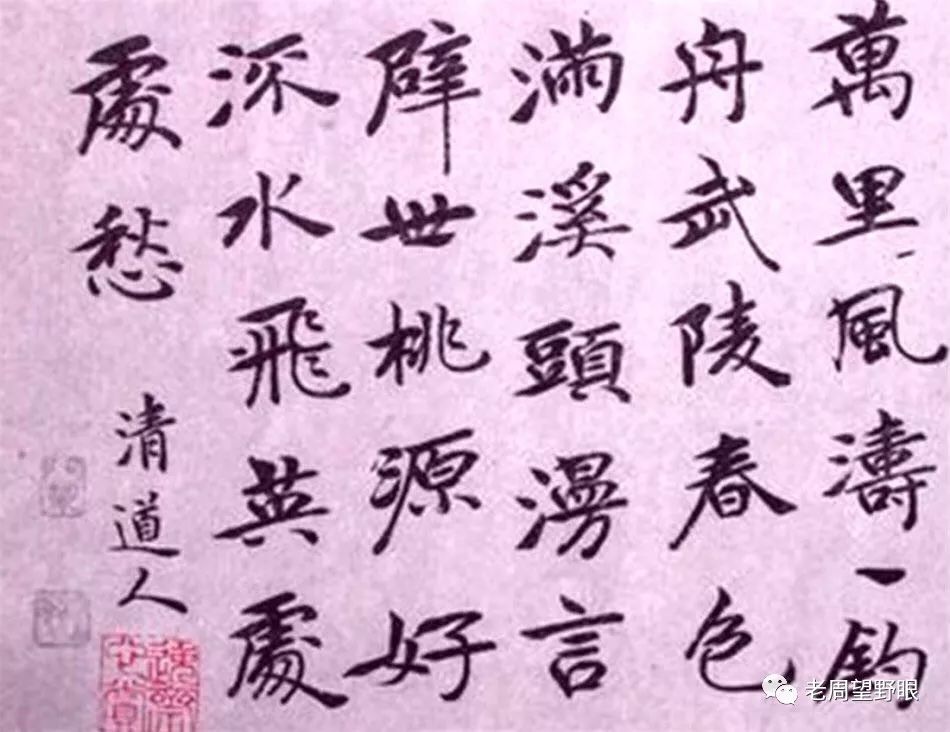 萬里風濤一釣
舟武陵春色
滿溪頭漫言
辟世桃源好
深水飛英處
處愁
清道人
老周望野眼